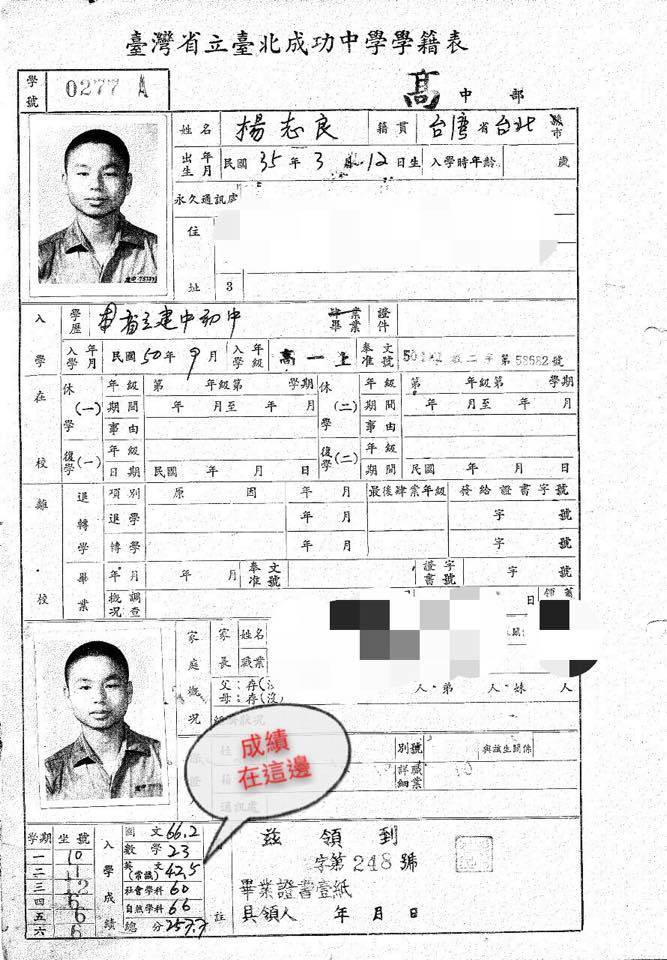 臺灣省立臺北成功中學學籍表
學號 0277 A
高 中部
姓名 楊志良 籍貫 台湾省台北 縣市
出生年月 民國35年3月12日生 入學時年齡 歲
永久通訊處
住址
3
入學 學歷 省立建中初中 肄業 畢業 證件
入學年月 民國50年9月 入學年級 高一上 奉准文號 第58682號
在校 休學(一) 年級 第 年級第 學期 休學(二) 年級 第 年級第 學期
期間 年 月至 年 月 期間 年 月至 年 月
事由 事由
復學(一) 年級 復學(二) 年級
日期 民國 年 月 日 期間 民國 年 月 日
離校 退轉學 項別 原因 年 月 最後肄業年級 發給證書字號
退學 年 月 字 號
轉學 年 月 字 號
畢業 年月 年 月 奉准文號 證書字號 字 號
概況調查 日
家庭概況 家長 姓名
職業
父:存(
母:存(沒) 人 弟 人 妹 人
別號 與該生關係
詳細職業
通訊處
成績
在這邊
學期 坐號 入學成績 國文 66.2
一 10 數學 23
二 1 英文(常識) 42.5
三 12 社會學科 60
四 6 自然學科 66
五 6 總分 257.7
六 6
註
茲領到
字第248號
畢業證書壹紙
具領人 年 月 日